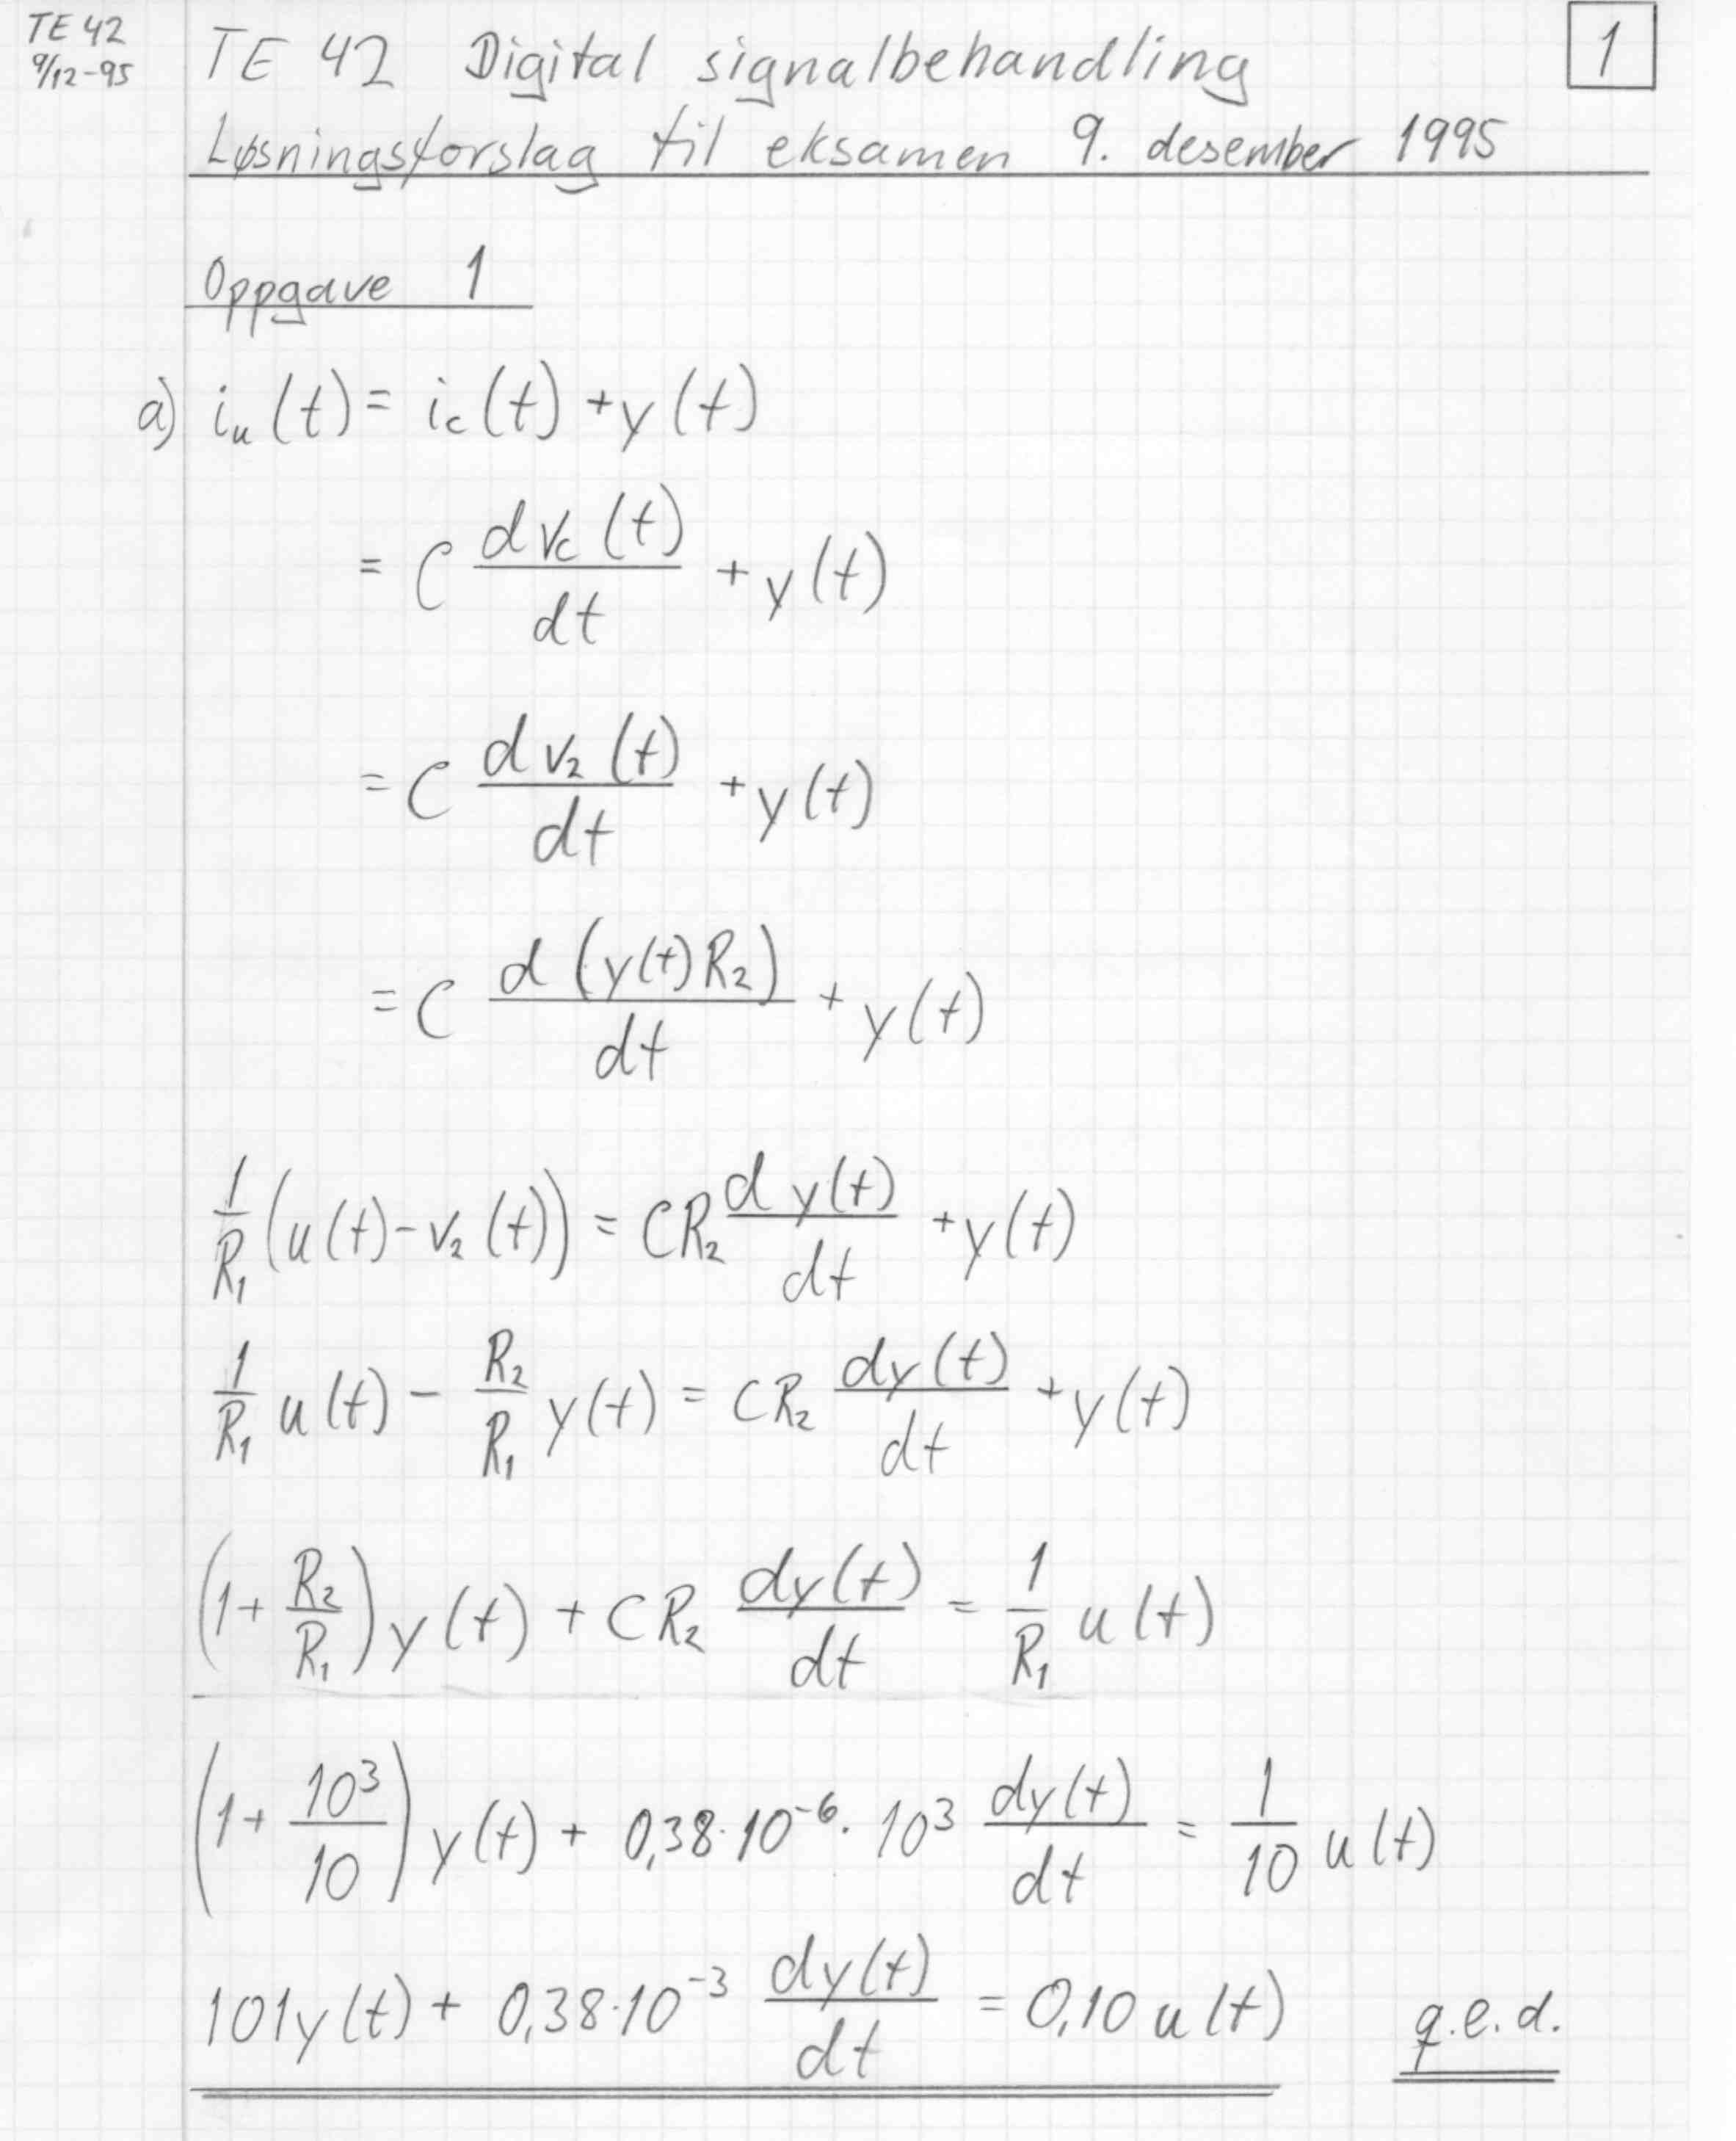 TE 42
9/12-95
TE 42 Digital signalbehandling
1
Løsningsforslag til eksamen 9. desember 1995
Oppgave 1
a) i_u(t) = i_c(t) + y(t)
= C \frac{d v_c(t)}{dt} + y(t)
= C \frac{d v_2(t)}{dt} + y(t)
= C \frac{d (y(t) R_2)}{dt} + y(t)
\frac{1}{R_1} (u(t) - v_2(t)) = C R_2 \frac{d y(t)}{dt} + y(t)
\frac{1}{R_1} u(t) - \frac{R_2}{R_1} y(t) = C R_2 \frac{dy(t)}{dt} + y(t)
(1 + \frac{R_2}{R_1}) y(t) + C R_2 \frac{dy(t)}{dt} = \frac{1}{R_1} u(t)
(1 + \frac{10^3}{10}) y(t) + 0,38 · 10^{-6} · 10^3 \frac{dy(t)}{dt} = \frac{1}{10} u(t)
101 y(t) + 0,38 · 10^{-3} \frac{dy(t)}{dt} = 0,10 u(t) q.e.d.